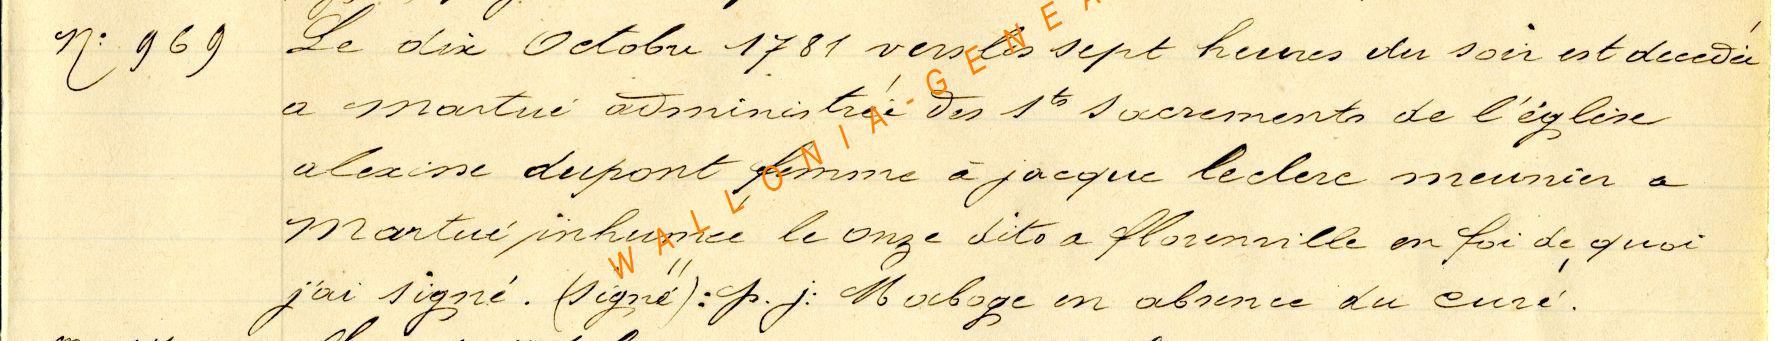 N: 969 Le dix Octobre 1781 vers les sept heures du soir est decedée
a Martué administréé des Sts Sacrements de l'église
alexisse dupont femme à jacque leclerc meunier a
Martué inhumée le onze dito a florenville en foi de quoi
j'ai signé. (signé): p. j: Maboge en absence du curé.
WALLONIA-GENEA